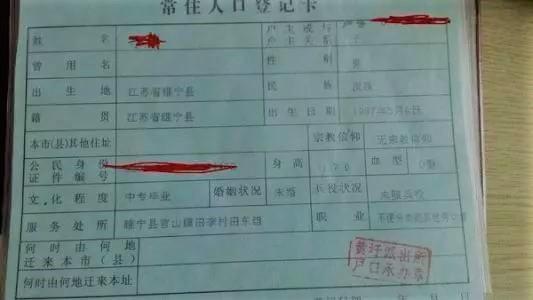 常住人口登记卡
姓 名
户主或与户主关系 子
曾用名 性别 男
出生地 江苏省睢宁县 民族 汉族
籍贯 江苏省睢宁县 出生日期
本市(县)其他住址 宗教信仰 无宗教信仰
公民身份证件编号 身高 血型
文化程度 中专毕业 婚姻状况 未婚 兵役状况 未服兵役
服务处所 睢宁县官山镇田李村田东组 职业
何时由何地迁来本市(县)
何时由何地迁来本址
派出所
户口承办章